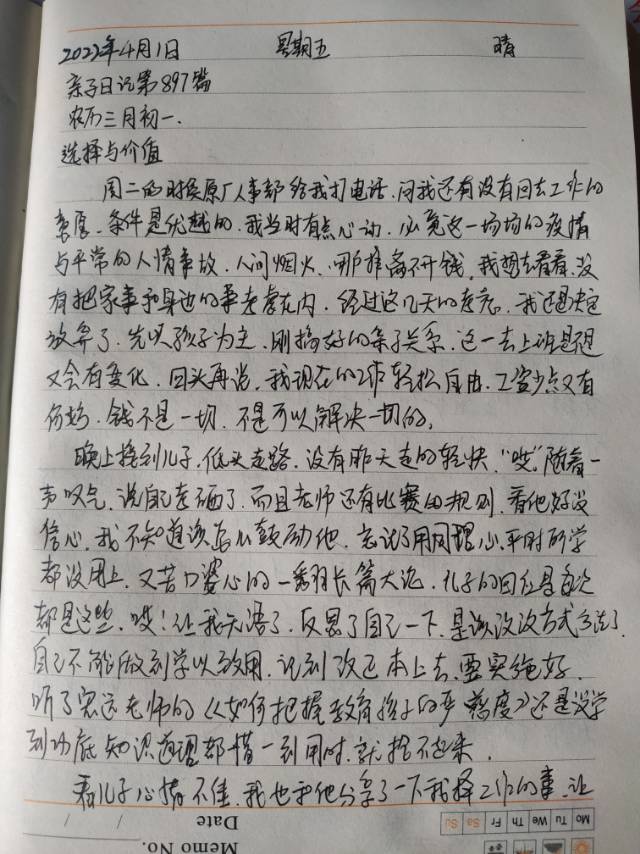 2022年4月1日 星期五 晴
亲子日记第897篇
农历三月初一.
选择与价值
周二的时候原厂人事部给我打电话.问我还有没有回去工作的
意愿.条件是优越的.我当时有点心动.必竟这一场场的疫情
与平常的人情事故.人间烟火.哪样离不开钱.我想去看看.没
有把家事和身边的事考虑在内.经过这几天的考虑.我还是决定
放弃了.先以孩子为主.刚搞好的亲子关系.这一去上班是恐
又会有变化.回头再说.我现在的工作轻松自由.工资少点又有
何妨.钱不是一切.不是可以解决一切的.
晚上接到儿子.低头走路.没有昨天走的轻快."哎"随着一
声叹气.说自己考砸了.而且老师还有比赛的规则.看他好没
信心.我不知道该怎么鼓励他.忘记了用同理心.平时所学
都没用上.又苦口婆心的一番长篇大论.儿子的回应是每次
都是这些.哎!让我无语了.反思了自己一下.是该改改方式方法了.
自己不能做到学以致用.记到改正本上去.要实施好.
听了宏远老师的《如何把握教育孩子的严慈度》还是没学
到功底知识道理都懂一到用时.就拾不起来.
看儿子心情不佳.我也和他分享了一下我择工作的事.让
Date / /
Memo No.
Mo Tu We Th Fr Sa Su